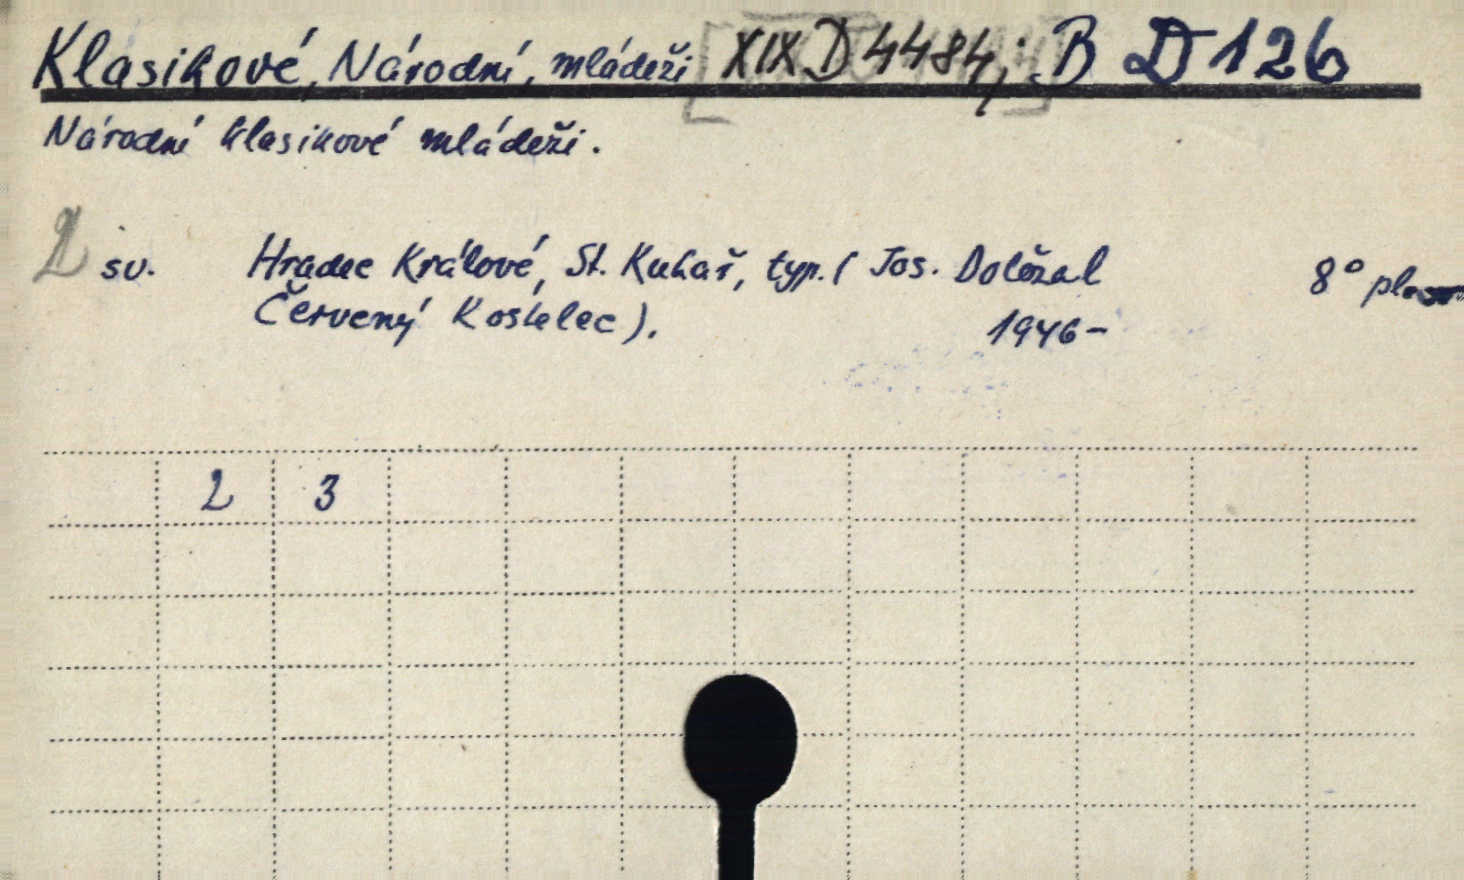 Klasikové, Národní, mládeži [XIX D 4484; B D 126
Národní klasikové mládeži.
2 sv. Hradec Králové, St. Kuhař, typ. (Jos. Doležal 8°
Červený Kostelec). 1946-
2 3